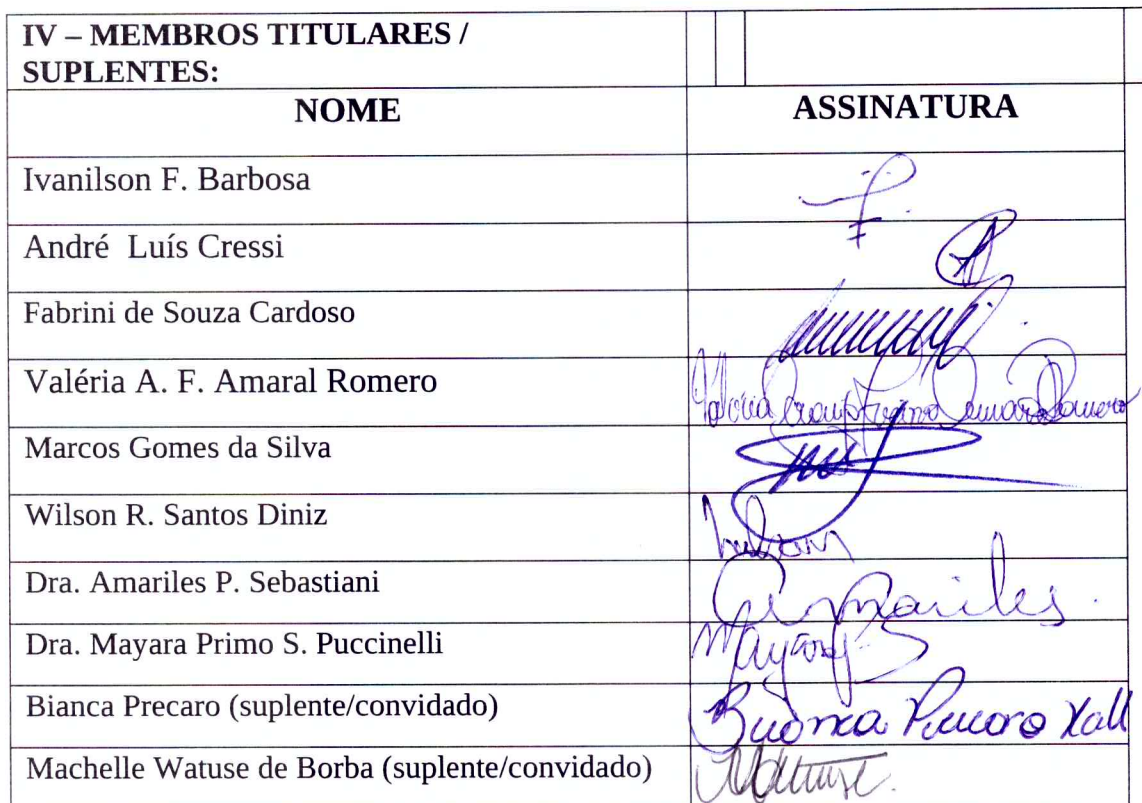 IV – MEMBROS TITULARES /
SUPLENTES:
NOME ASSINATURA
Ivanilson F. Barbosa
André Luís Cressi
Fabrini de Souza Cardoso
Valéria A. F. Amaral Romero
Marcos Gomes da Silva
Wilson R. Santos Diniz
Dra. Amariles P. Sebastiani Amariles.
Dra. Mayara Primo S. Puccinelli
Bianca Precaro (suplente/convidado) Bianca
Machelle Watuse de Borba (suplente/convidado)